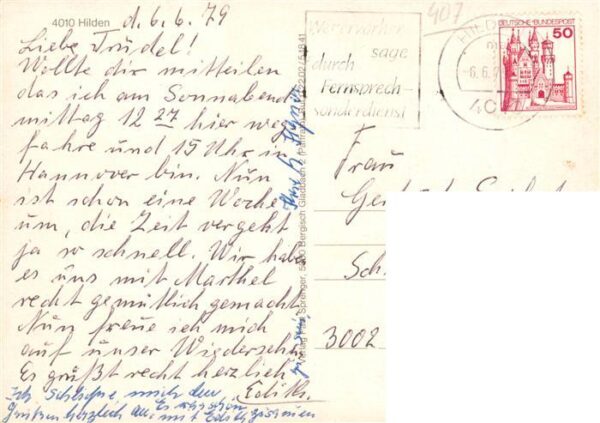 4010 Hilden
d. 6.6.79
Liebe Trudel!
Wollte dir mitteilen
das ich am Sonnabend
mittag 12 27 hier weg
fahre und 15 Uhr in
Hannover bin. Nun
ist schon eine Woche
um, die Zeit vergeht
ja so schnell. Wir habe
es uns mit Marthel
recht gemütlich gemacht
Nun freue ich mich
auf unser Wiedersehn
Es grüßt recht herzlich
Edith.
Ich schließe mich den
Grüßen herzlich an. Es
mit Edith
Sprenger, Bergisch Gladbach
Wettervorher-
sage
durch
Fernsprech-
sonderdienst
407
HILD
6.6.
DEUTSCHE BUNDESPOST
50
Frau
Sch.
3002